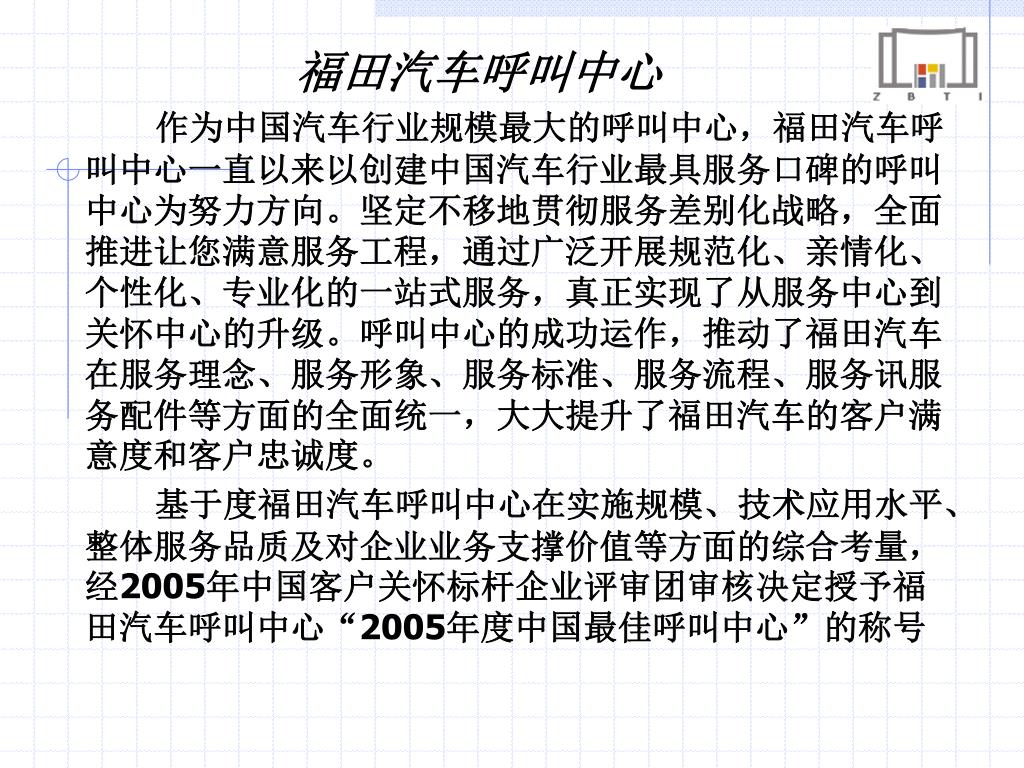 福田汽车呼叫中心
Z B T I
作为中国汽车行业规模最大的呼叫中心，福田汽车呼
叫中心一直以来以创建中国汽车行业最具服务口碑的呼叫
中心为努力方向。坚定不移地贯彻服务差别化战略，全面
推进让您满意服务工程，通过广泛开展规范化、亲情化、
个性化、专业化的一站式服务，真正实现了从服务中心到
关怀中心的升级。呼叫中心的成功运作，推动了福田汽车
在服务理念、服务形象、服务标准、服务流程、服务讯服
务配件等方面的全面统一，大大提升了福田汽车的客户满
意度和客户忠诚度。
基于度福田汽车呼叫中心在实施规模、技术应用水平、
整体服务品质及对企业业务支撑价值等方面的综合考量，
经2005年中国客户关怀标杆企业评审团审核决定授予福
田汽车呼叫中心“2005年度中国最佳呼叫中心”的称号